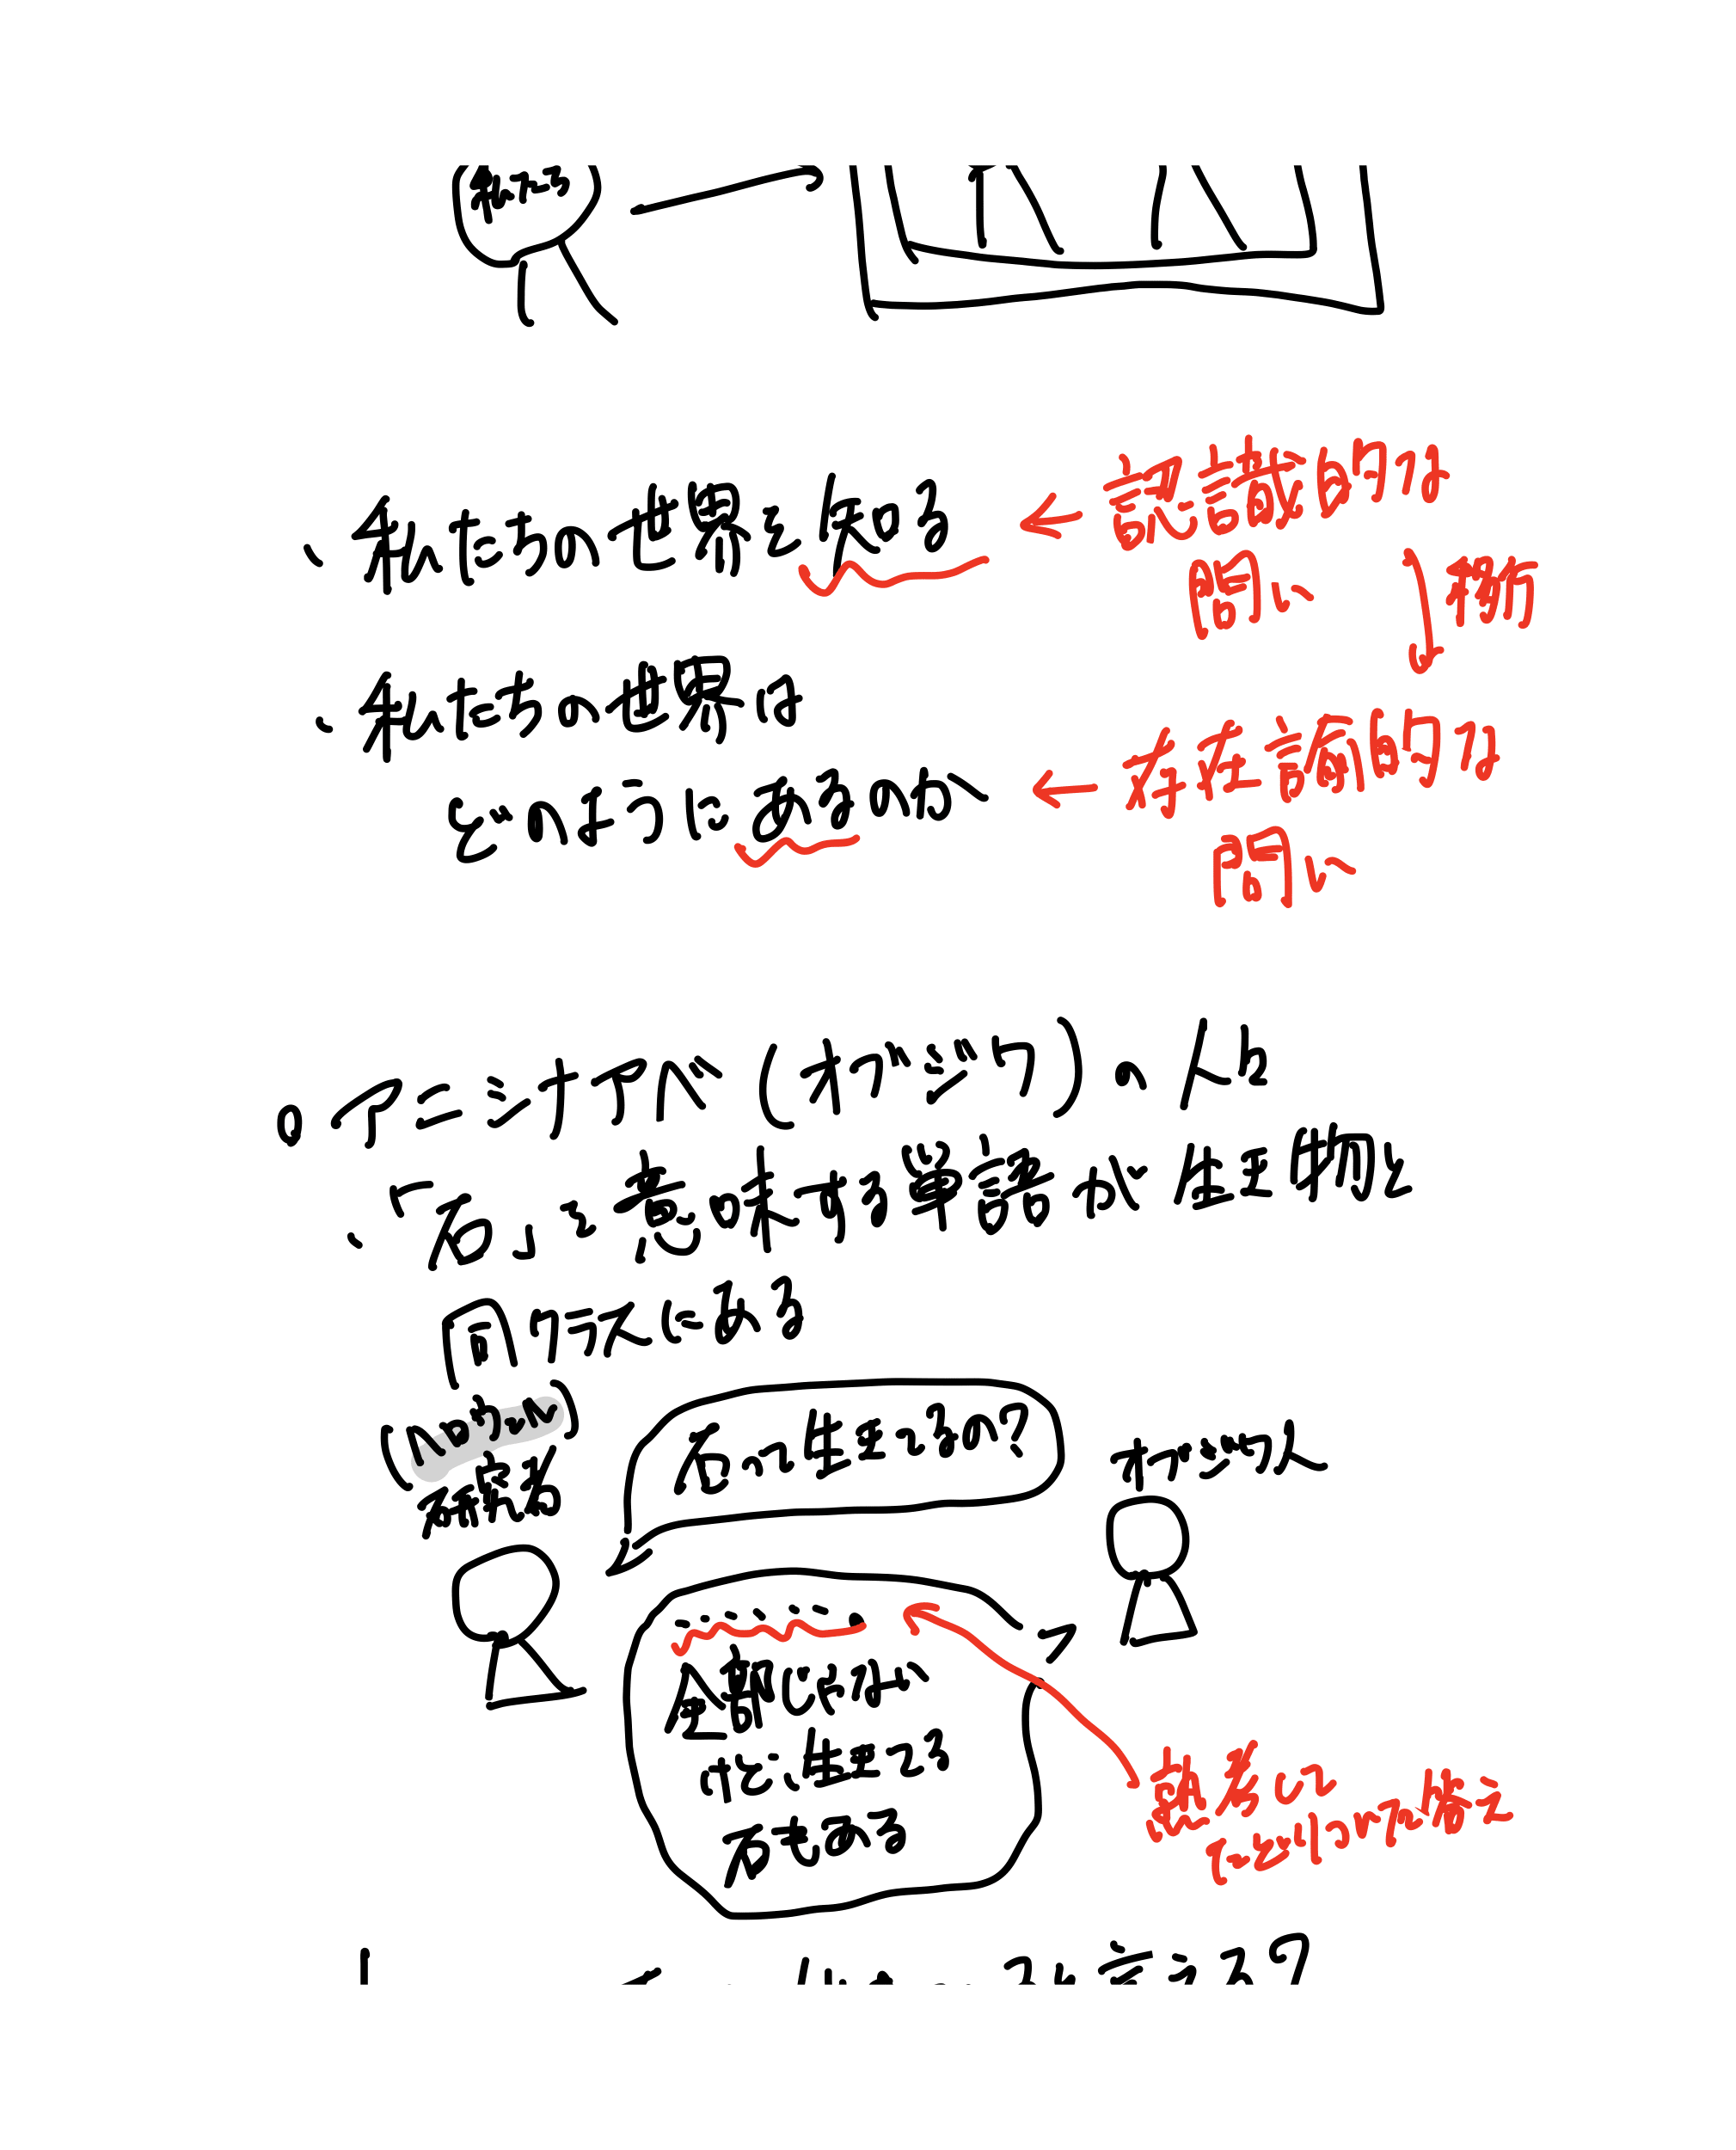 私たち
・私たちの世界を知る ← 認識的な
問い
・私たちの世界は
どのようにあるのか ← 存在論的な
問い
。アニシナアベ(オブジワ)の人と
・「石」を意味する単語が生物と
同クラスにある
石って生きてるの?
オブジワ人
全部じゃないが
けど、生きてる
石もある
熟考して